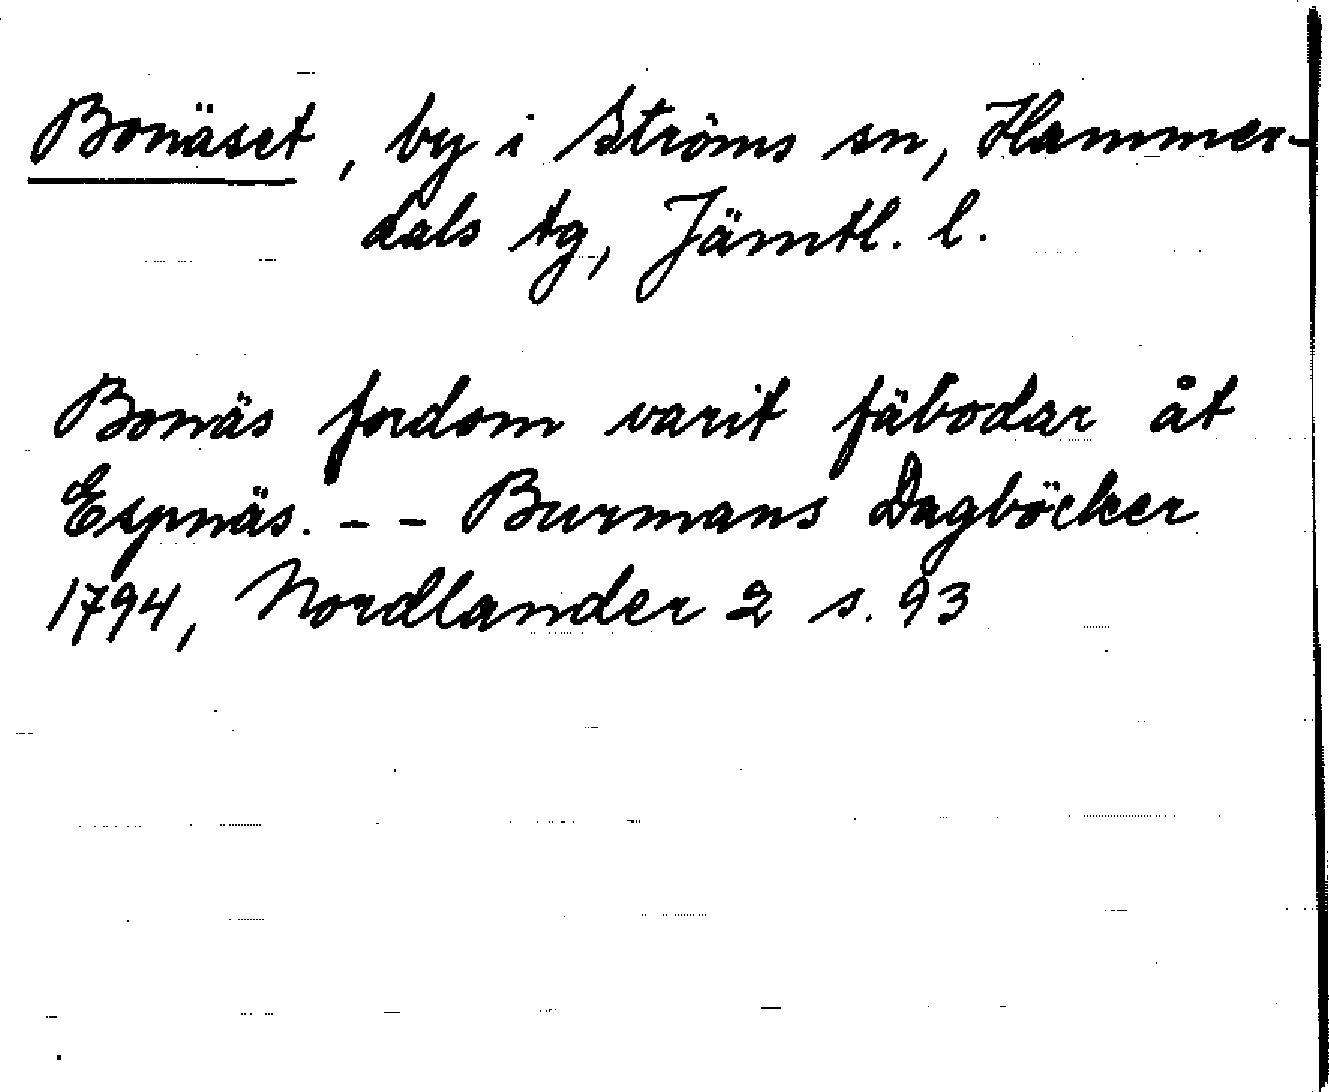 Bonäset, by i Ströms sn, Hammer-
dals tg, Jämtl. l.
Bonäs fordom varit fäbodar åt
Espnäs. - - Burmans Dagböcker
1794, Nordlander 2 s. 93